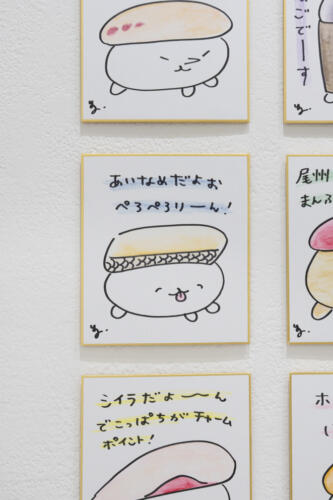 ごでーす
あいなめだよぉ
ぺろぺろりーん!
尾州
まんふ
シイラだよ〜〜ん
でこっぱちがチャーム
ポイント!
ホ